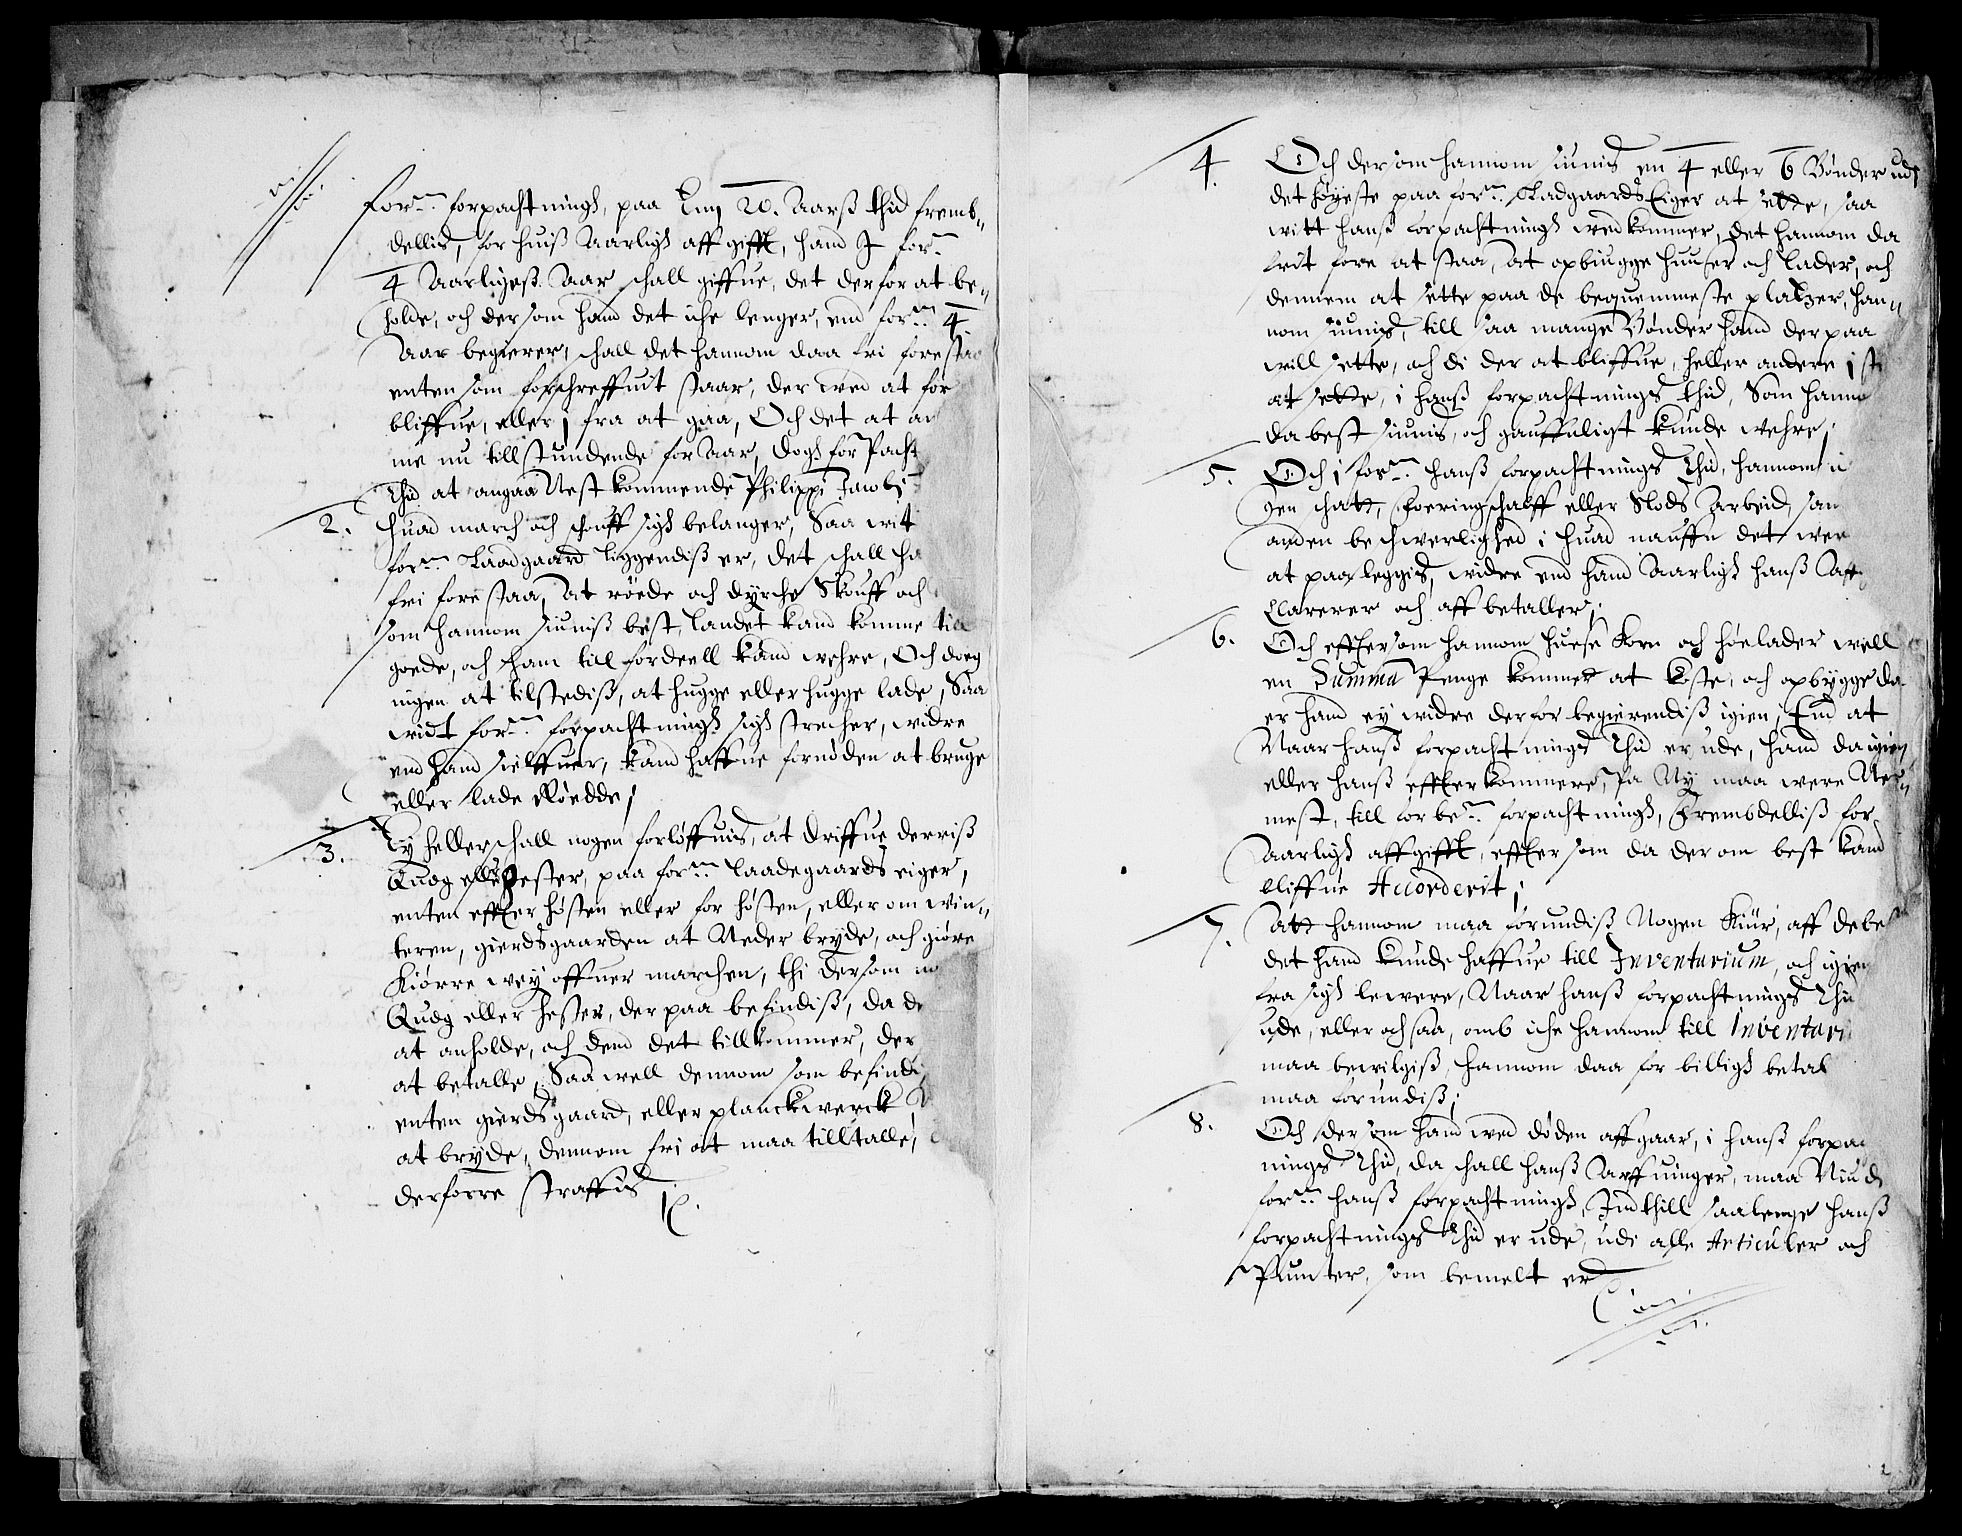 for:ne forpachtningh, paa Eny 20. Aarß thid fremb„
dellis, for huiß Aarligh affgifft, hand I for:ne
4 Aarligeß Aar schall giffue, det derfor at be„
holde, och dersom hand det iche lenger, end for:ne 4.
Aar begierer, schall det hannom daa fri forestaa
enten som forschreffuit staar, der wed at for
bliffue, eller j fra at gaa, Och det at an
me nu tillstundende for Aar, dogh for Pacht
Thid at angaa Nest kommende Philippi Jacobi
2. Huad march och schouff sigh belanger, Saa wit
for:ne Laadgaard liggendiß er, det schall ha
fri fore staa, At röede och dyrche Skouff och
som hannom siuniß best, landet kand komme till
goede, och ham till fordeell kand wehre, Och doeg
ingen at tilstediß, at hugge eller hugge lade, Saa
widt for:ne forpachtningh sigh strecher, widre
end hand sielffuer, kand haffue fornöden at bruge
eller lade Röedde;
3. Ey heller schall nogen forlöffuis, at driffue derriß
Quæg eller Hester, paa for:ne laadegaards eiger,
enten effter hösten eller for hösten, eller om Win„
teren, gierdsgaarden at Neder bryde, och giöre
Kiörre wey offuer marchen, thi dersom no
Quæg eller hester, der paa befindiß, da de
at anholde, och dend det tillkommer, der
at betalle, Saa well dennom som befindi
enten gierdsgaard, eller planckwerck
at bryde, dennom fri at maa tilltalle,
derforre straffis
4. Och dersom hannom siunis en 4 eller 6 Bönder udj
det höyeste paa for:ne Ladgaards Eiger at sette, saa
witt hanß forpachtningh wed kommer, det hannom da
frit fore at staa, At opbiugge huuser och lader, och
dennem at sette paa de bequemmeste platzer, han„
nom siunis, till saa mange Bönder hand der paa
will sette, och di der at bliffue, heller andere i ste
at sette, i hanß forpachtnings thid, Som hanno
da best siunis, och gauffnligst kunde wehre;
5. Och i for:ne hanß forpachtnings Thid, hannom i
gen schatt, Foeringschaff eller Slods Arbeid, saa
anden beschwerlighed i huad nauffn det were
at paa leggis, widre end hand Aarligh hanß Aff
Clarerer och aff betaller;
6. Och effter som hannom huese Korn och höelader well
en Summa Penge kommer at koste, och opbygge da
er hand ey widre derfor begierendiß igien, End at
Naar hanß forpachtnings Thid er ude, hand da igien
eller hanß effterkommere, Pa Ny maa were Ner„
mest, till forbe:ne forpachtningh, Frembdelliß for
Aarligh affgifft, effter som da der om best kand
bliffue Accorderit;
7. Att hannom maa forundiß Nogen Kiür, aff de be
det hand kunde haffue till Inventarium, och igien
fra sigh lewere, Naar hanß forpachtnings Thid
ude, eller och saa, omb iche hannom till Inventari
maa bewilgiß, hannom daa for billigh betal
maa forundiß;
8. Och dersom hand wed döden affgaar, i hanß forpac
nings Thid, da schall hanß Arffuinger, maa Niude
for:ne hanß forpachtningh, Indthill saalenge hanß
forpachtnings Thid er ude, udi alle Articuler och
Puncter, som bemelt er